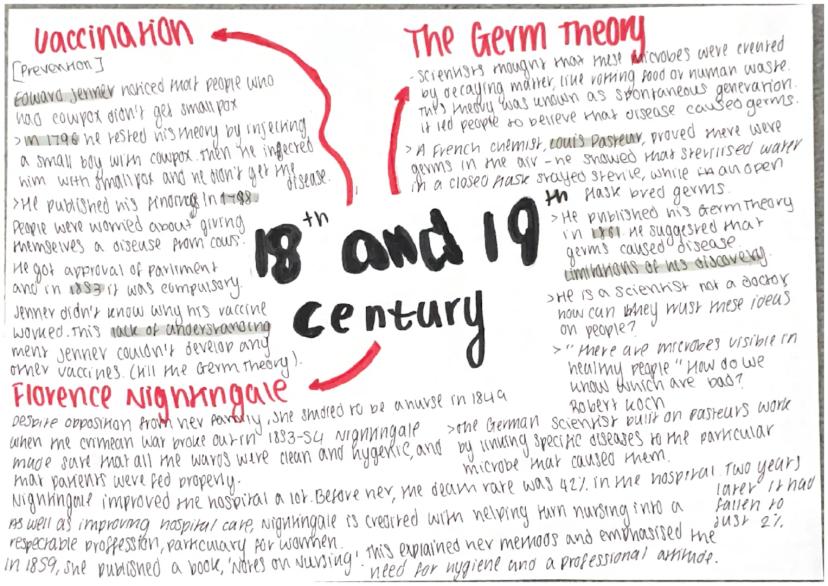 Vaccination
[Prevention]
Edward Jenner noticed that people who
had cowpox didn't get smallpox
> in 1796 he tested his theory by injecting
a small boy with cowpox. Then he injected
him with smallpox and he didn't get the
disease.
> He published his findings in 1798
People were worried about giving
themselves a disease from cows.
He got approval of parliment
and in 1853 it was compulsory.
Jenner didn't know why his vaccine
worked. This lack of understanding
ment Jenner couldn't develop any
other vaccines. (till the Germ Theory).
The Germ Theory
- Scientists thought that these microbes were created
by decaying matter, like rotting food or human waste.
This theory was known as spontaneous generation.
it led people to believe that disease caused germs.
> A French chemist, Louis Pasteur, proved there were
germs in the air - he showed that sterilised water
in a closed flask stayed sterile, while an open
flask bred germs.
> He published his Germ Theory
in 1861. He suggested that
germs caused disease.
Limitations of his discovery.
> He is a scientist not a doctor
how can they trust these ideas
on people?
> "there are microbes visible in
healthy people" How do we
know which are bad?
Robert Koch
> the German scientist built on pasteurs work
by linking specific diseases to the particular
microbe that caused them.
18th and 19th
century
Florence Nightingale
Despite opposition from her family, she studied to be a nurse in 1849
when the crimean war broke out in 1853-54 Nightingale
made sure that all the wards were clean and hygenic, and
that patients were fed properly.
Nightingale improved the hospital a lot. Before her, the death rate was 42% in the hospital. Two years
later it had
fallen to
just 2%.
As well as improving hospital care, Nightingale is credited with helping turn nursing into a
respectable proffession, particulary for women.
In 1859, she published a book, 'Notes on Nursing'. This explained her methods and emphasised the
need for hygiene and a professional attitude.